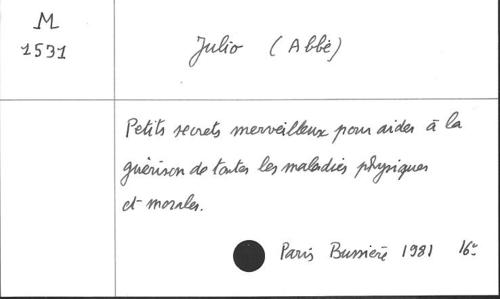 M
1531
Julio (Abbé)
Petits secrets merveilleux pour aider à la
guérison de toutes les maladies physiques
et morales.
Paris Bussière 1981 16°